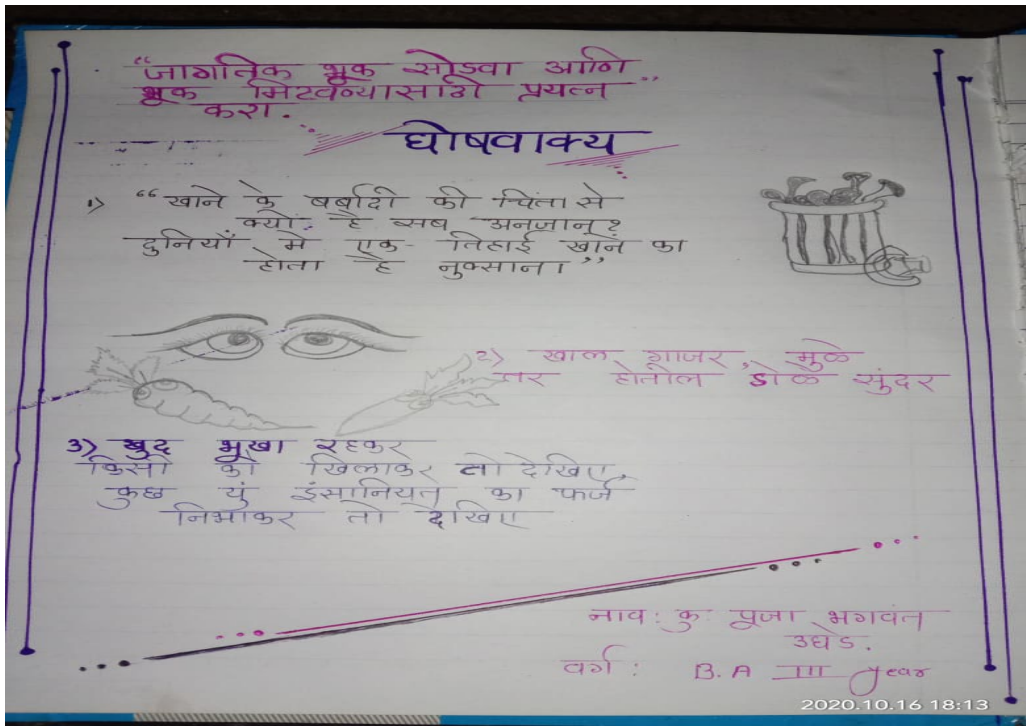 “जागतिक भूक सोडवा आणि
भूक मिटवण्यासाठी प्रयत्न”
करा.
घोषवाक्य
१) “खाने के बर्बादी की चिंता से
क्यों है सब अनजान?
दुनियाँ मे एक-तिहाई खाने का
होता है नुक्साना”
२) खाल गाजर, मुळे
तर होतील डोळे सुंदर
३) खुद भूखा रहकर
किसी को खिलाकर तो देखिए,
कुछ युं इंसानियत का फर्ज
निभाकर तो देखिए
नाव: कु पूजा भगवंत
उघडे.
वर्ग: B.A III year
2020.10.16 18:13